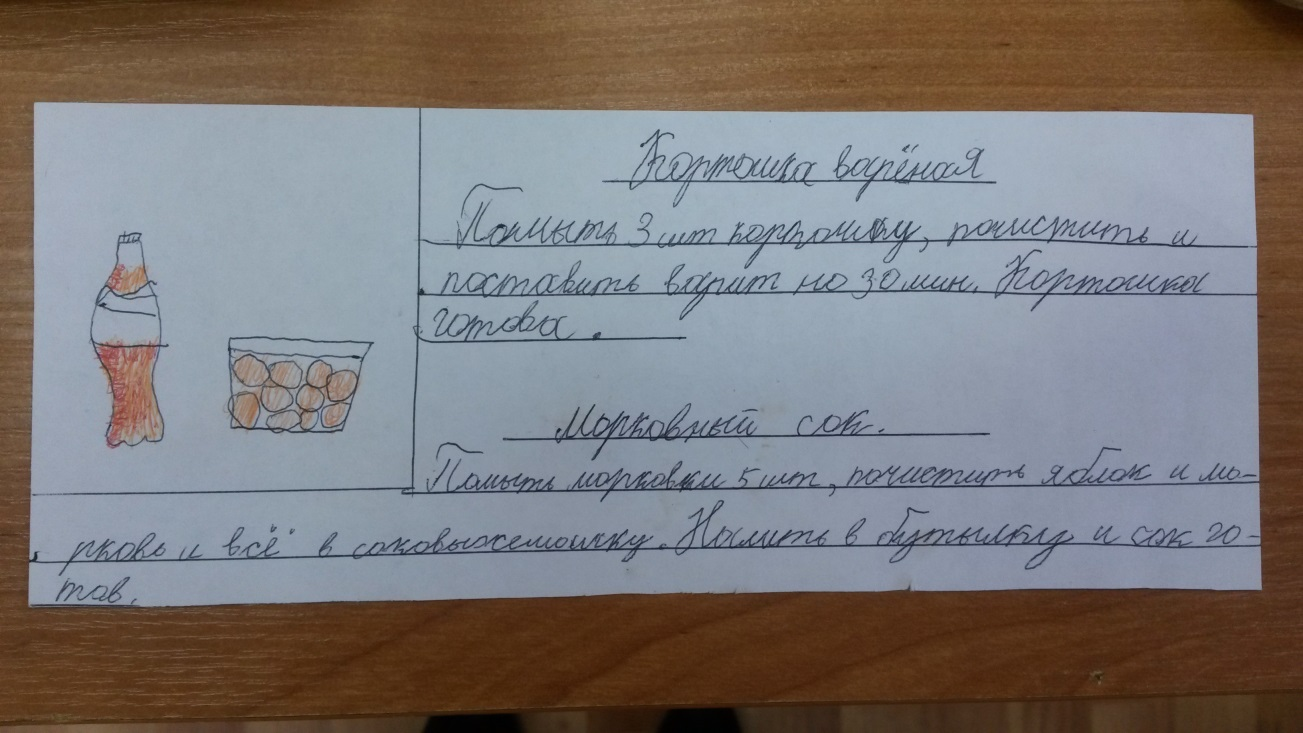 Картошка варёная
Помыть 3 шт картошку, почистить и
поставить варит на 30 мин. Картошка
готова.
Морковный сок.
Помыть морковки 5 шт, почистить яблок и мо-
рковь и всё в соковыжемалку. Налить в бутылку и сок го-
тов.